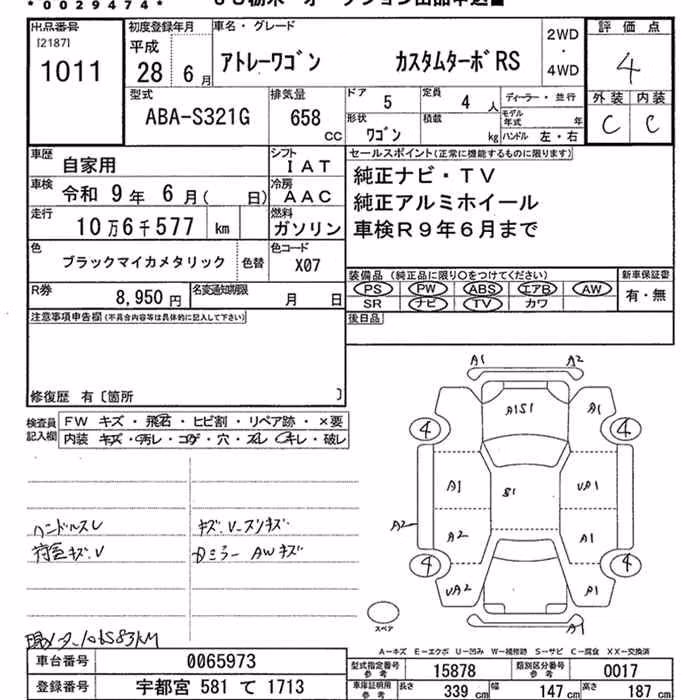 *0029474*
出品番号 [2187] 1011
初度登録年月 平成 28年 6月
車名・グレード アトレーワゴン カスタムターボRS
2WD・4WD
評価点 4
外装 C 内装 C
型式 ABA-S321G
排気量 658 CC
ドア 5
定員 4人
ディーラー・並行
形状 ワゴン
積載 kg
モデル年式 年
ハンドル 左・右
車歴 自家用
シフト IAT
車検 令和 9年 6月( 日)
冷房 AAC
走行 10万6千577 km
燃料 ガソリン
色 ブラックマイカメタリック
色替
色コード X07
R券 8,950円
名変通知期限 月 日
セールスポイント(正常に機能するものに限ります)
純正ナビ・TV
純正アルミホイール
車検R9年6月まで
装備品 (純正品に限り○をつけてください)
PS PW ABS エアB AW
SR ナビ TV カワ
新車保証書 有・無
後日品
注意事項申告欄(不具合内容等は具体的に記入して下さい)
修復歴 有〔箇所 〕
検査員記入欄
FW キズ・飛石・ヒビ割・リペア跡・×要
内装 キズ・汚レ・コゲ・穴・スレ・キレ・破レ
ハンドルスレ
キズ.V-スリキズ
AWキズ
A1 A2
A1S1
A1
4 4
A1 S1 UA1
A2 A2 A1
4 4
UA2 A1
A1
スペア
A-キズ E-エクボ U-凹み W-補修跡 S-サビ C-腐食 XX-交換済
車台番号 0065973
登録番号 宇都宮 581 て 1713
型式指定番号 参考 15878
類別区分番号 参考 0017
車庫証明用 参考 長さ 339 cm 幅 147 cm 高さ 187 cm